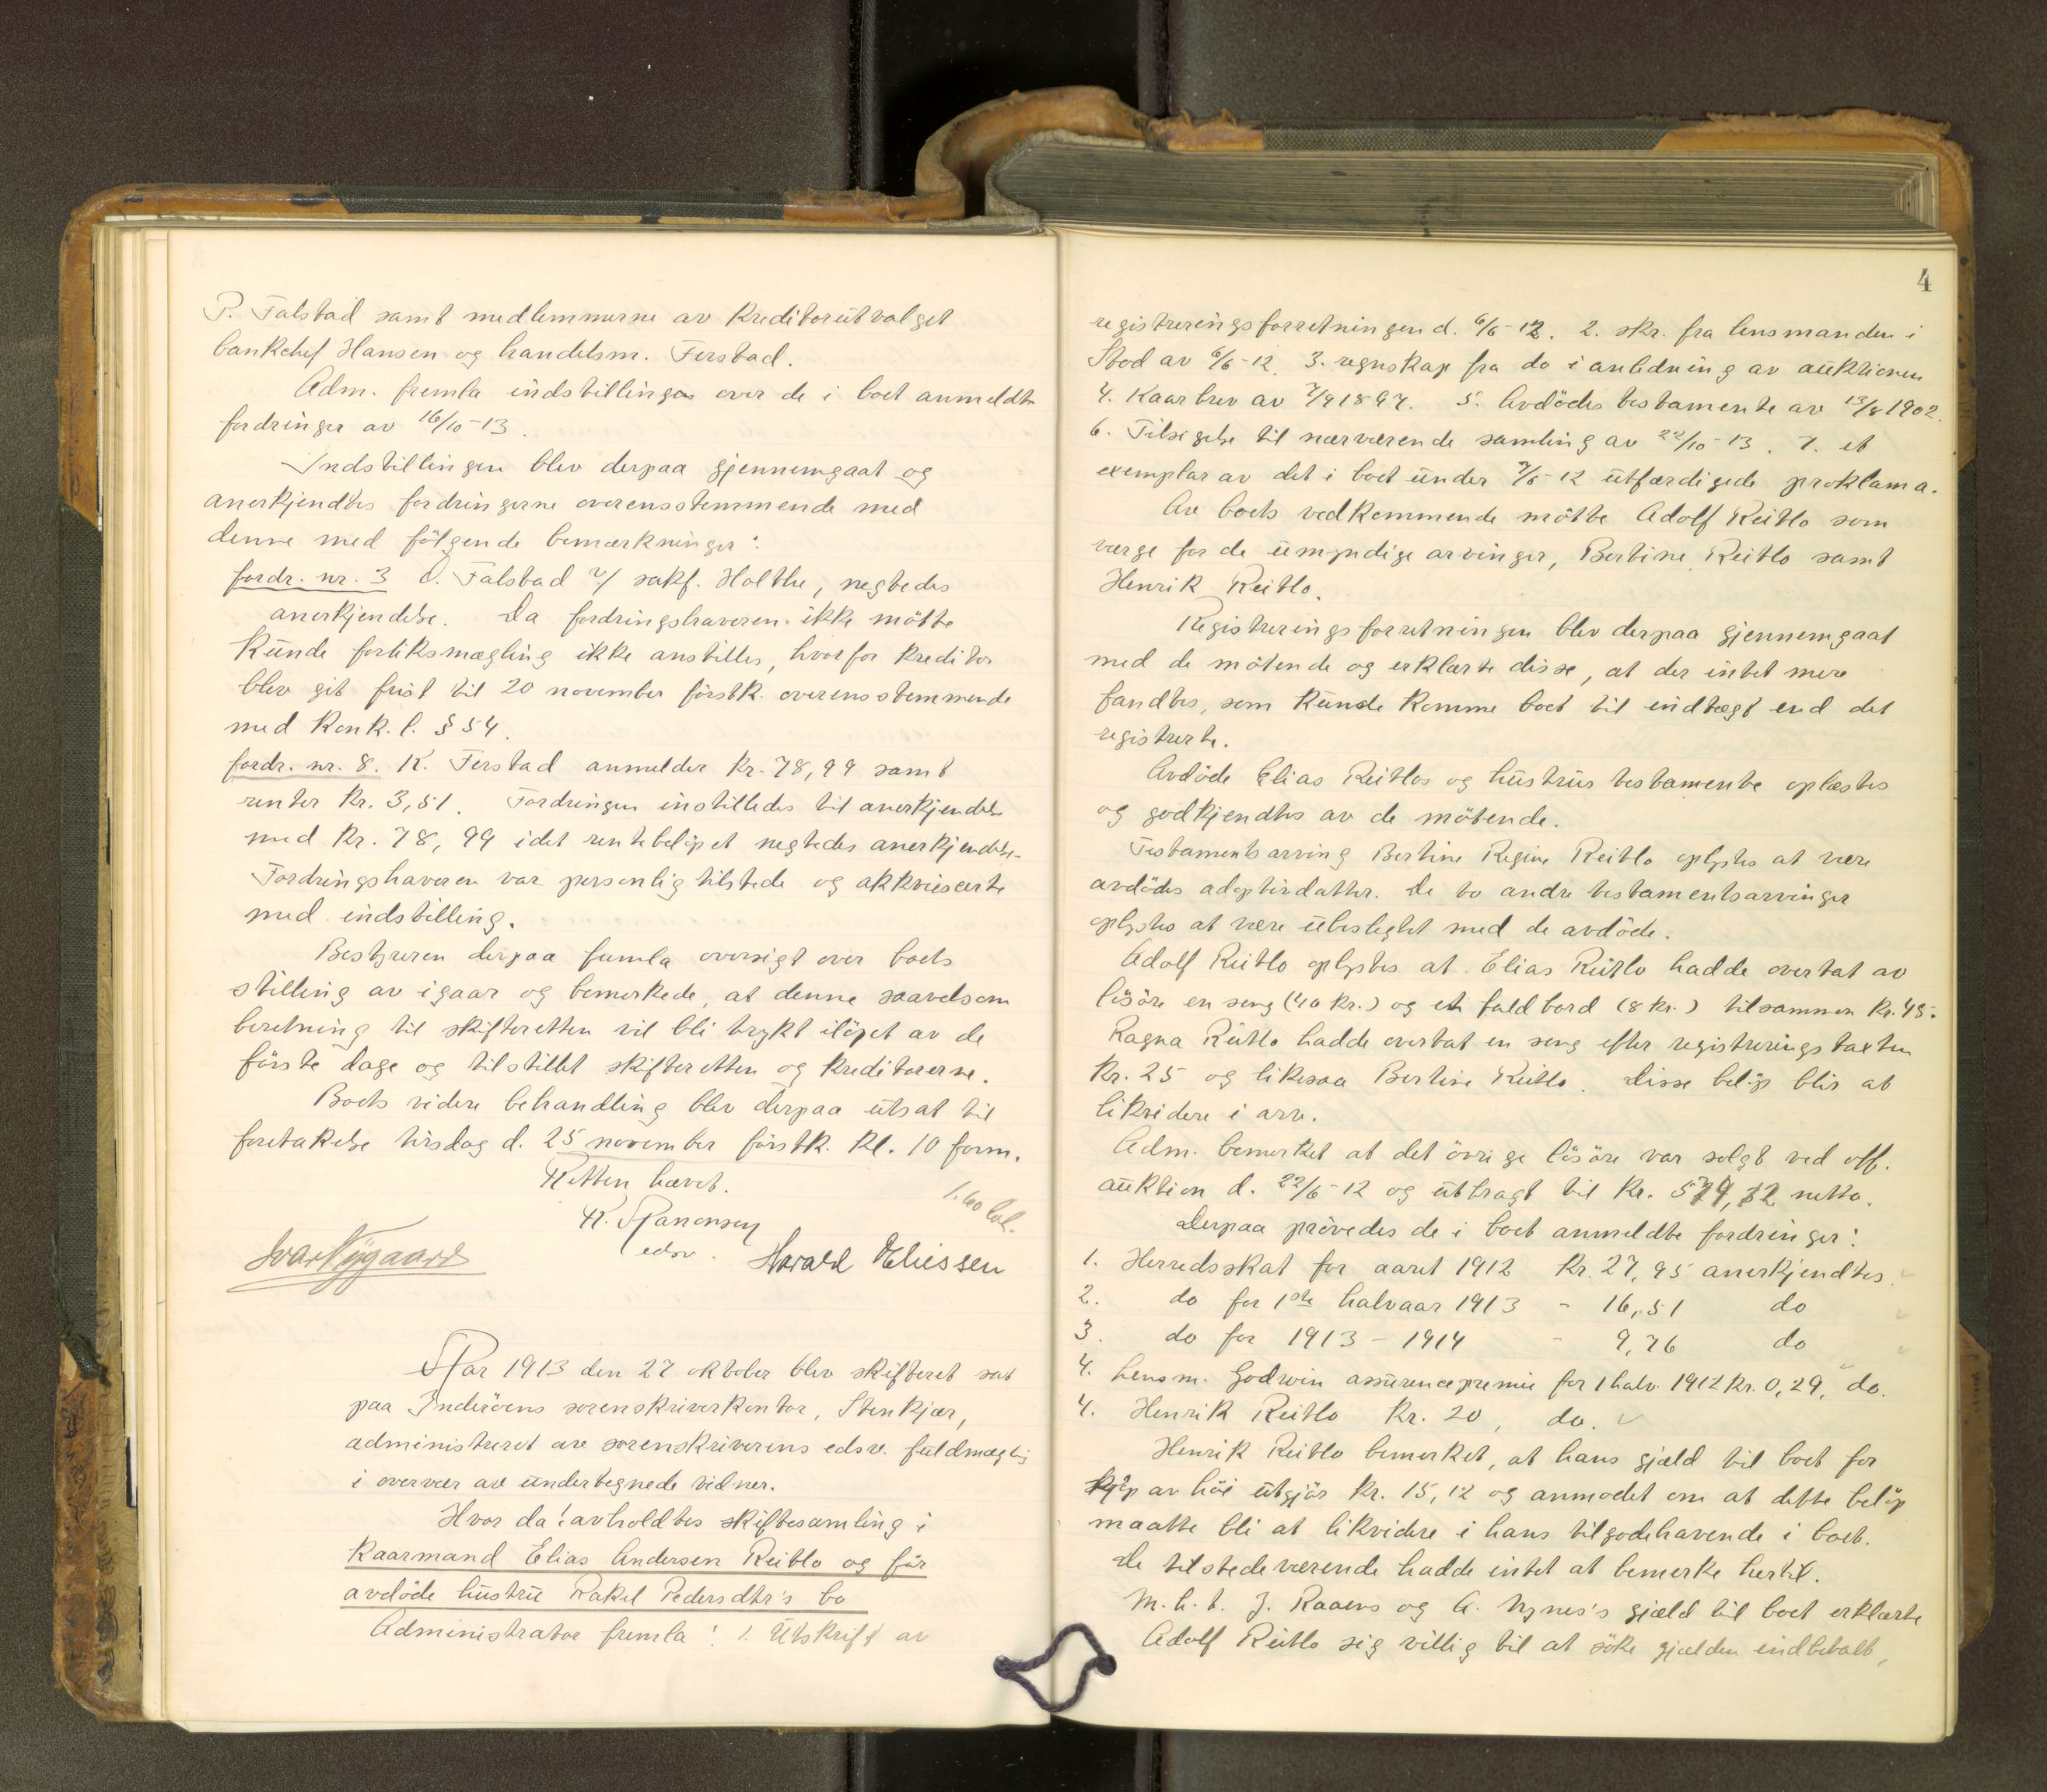 P. Falstad samt medlemmerne av kreditorutvalget
bankchef Hansen og handelsm. Ferstad.
Adm. fremla indstillingen over de i boet anmeldte
fordringer av 16/10-13.
Indstillingen blev derpaa gjennemgaat og
anerkjendtes fordringerne overensstemmende med
denne med följende bemerkninger:
fordr. nr. 3 O. Falstad v/ sakf. Holthe, negtedes
anerkjendelse. Da fordringshaveren ikke mötte
kunde forliksmægling ikke anstilles, hvorfor kreditor
blev git frist til 20 november förstk. overensstemmende
med Konk. l. § 54.
fordr. nr. 8. K. Ferstad anmelder kr. 78,99 samt
renter kr. 3,51. Fordringen instilledes til anerkjendelse
med kr. 78,99 idet rentebelöpet negtedes anerkjendelse.
Fordringshaveren var personlig tilstede og akkviescerte
med indstilling.
Bestyreren derpaa fremla oversigt over boets
stilling av igaar og bemerkede, at denne saavelsom
beretning til skifteretten vil bli trykt ilöpet av de
förste dage og tilstillet skifteretten og kreditorerne.
Boets videre behandling blev derpaa utsat til
foretakelse tirsdag d. 25 november förstk. kl. 10 form.
Retten hævet.
1.60 bet.
edsv.
Ivar Nygaard
Harald Eliessen
Aar 1913 den 27 oktober blev skifteret sat
paa Inderöens sorenskriverkontor, Stenkjær,
administreret av sorenskriverens edsv. fuldmægtig
i overvær av undertegnede vidner.
Hvor da: avholdtes skiftesamling i
Kaarmand Elias Andersen Reitlo og för
avdöde hustru Rakel Pedersdtr's bo
Administrator fremla: 1. Utskrift av
4
registreringsforretningen d. 6/6-12. 2. skr. fra lensmanden i
Stod av 6/6-12. 3. regnskap fra do i anledning av auktionen
4. Kaarbrev av 7/9 1897. 5. Avdödes testamente av 13/8 1902.
6. Tilsigelse til nærværende samling av 22/10-13. 7. et
exemplar av det i boet under 7/6-12 utfærdigede proklama.
Av boets vedkommende mötte Adolf Reitlo som
verge for de umyndige arvinger, Bertine Reitlo samt
Henrik Reitlo.
Registreringsforretningen blev derpaa gjennemgaat
med de mötende og erklærte disse, at der intet mere
fandtes, som kunde komme boet til indtægt end det
registrerte.
Avdöde Elias Reitlos og hustrus testamente oplæstes
og godkjendtes av de mötende.
Testamentsarving Bertine Regine Reitlo oplystes at være
avdödes adoptivdatter. De to andre testamentsarvinger
oplystes at være ubeslegtet med de avdöde.
Adolf Reitlo oplystes at Elias Reitlo hadde overtat av
lösöre en seng (40 kr.) og et faldbord (8 kr.) tilsammen kr. 48.
Ragna Reitlo hadde overtat en seng efter registreringstaxten
kr. 25 og likesaa Bertine Reitlo. Disse belöp blir at
likvidere i arv.
Adm. bemerket at det övrige lösöre var solgt ved off.
auktion d. 22/6-12 og utbragt til kr. 579,12 netto.
Derpaa prövedes de i boet anmeldte fordringer:
1. Herredsskat for aaret 1912 Kr. 27,95 anerkjendtes.
2. do for 1ste halvaar 1913 - 16,51 do
3. do for 1913 - 1914 - 9,76 do
4. Lensm. Godwin assurencepremie for 1 halv. 1912 Kr. 0,29, do.
4. Henrik Reitlo kr. 20, do.
Henrik Reitlo bemerket, at hans gjæld til boet for
kjöp av höi utgjör kr. 15,12 og anmodet om at dette belöp
maatte bli at likvidere i hans tilgodehavende i boet.
De tilstedeværende hadde intet at bemerke hertil.
M. h. t. J. Raaens og A. Nynes's gjæld til boet erklærte
Adolf Reitlo sig villig til at söke gjælden indbetalt,